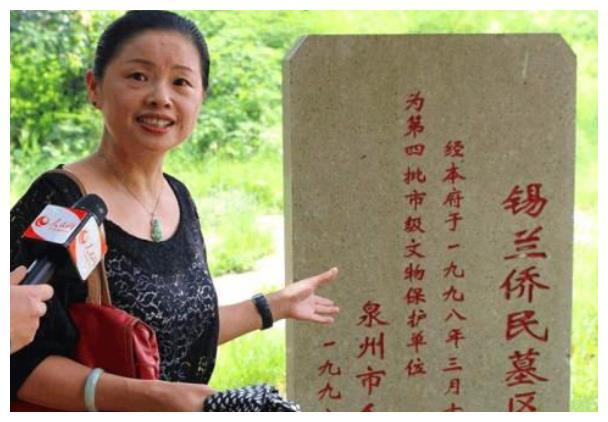 锡兰侨民墓区
经本府于一九九八年三月
为第四批市级文物保护单位
泉州市
一九九
人民网